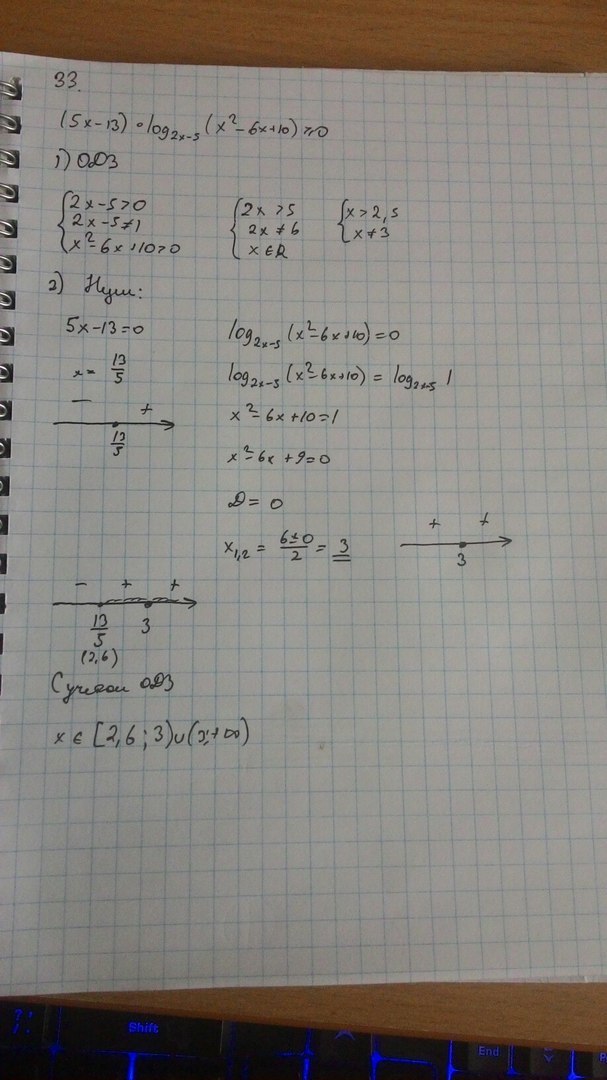 33.
(5x-13) · log_{2x-5} (x²-6x+10) ≥ 0
1) ОДЗ
{2x-5>0 {2x>5 {x>2,5
{2x-5≠1 {2x≠6 {x≠3
{x²-6x+10>0 {x∈R
2) Нули:
5x-13=0 log_{2x-5} (x²-6x+10)=0
x= 13/5 log_{2x-5} (x²-6x+10) = log_{2x-5} 1
- + x²-6x+10=1
13/5
x²-6x+9=0
D= 0
x_{1,2} = (6±0)/2 = 3
+ +
3
- + +
13/5 3
(2,6)
С учетом ОДЗ
x ∈ [2,6; 3)∪(3;+∞)
?! Shift
End